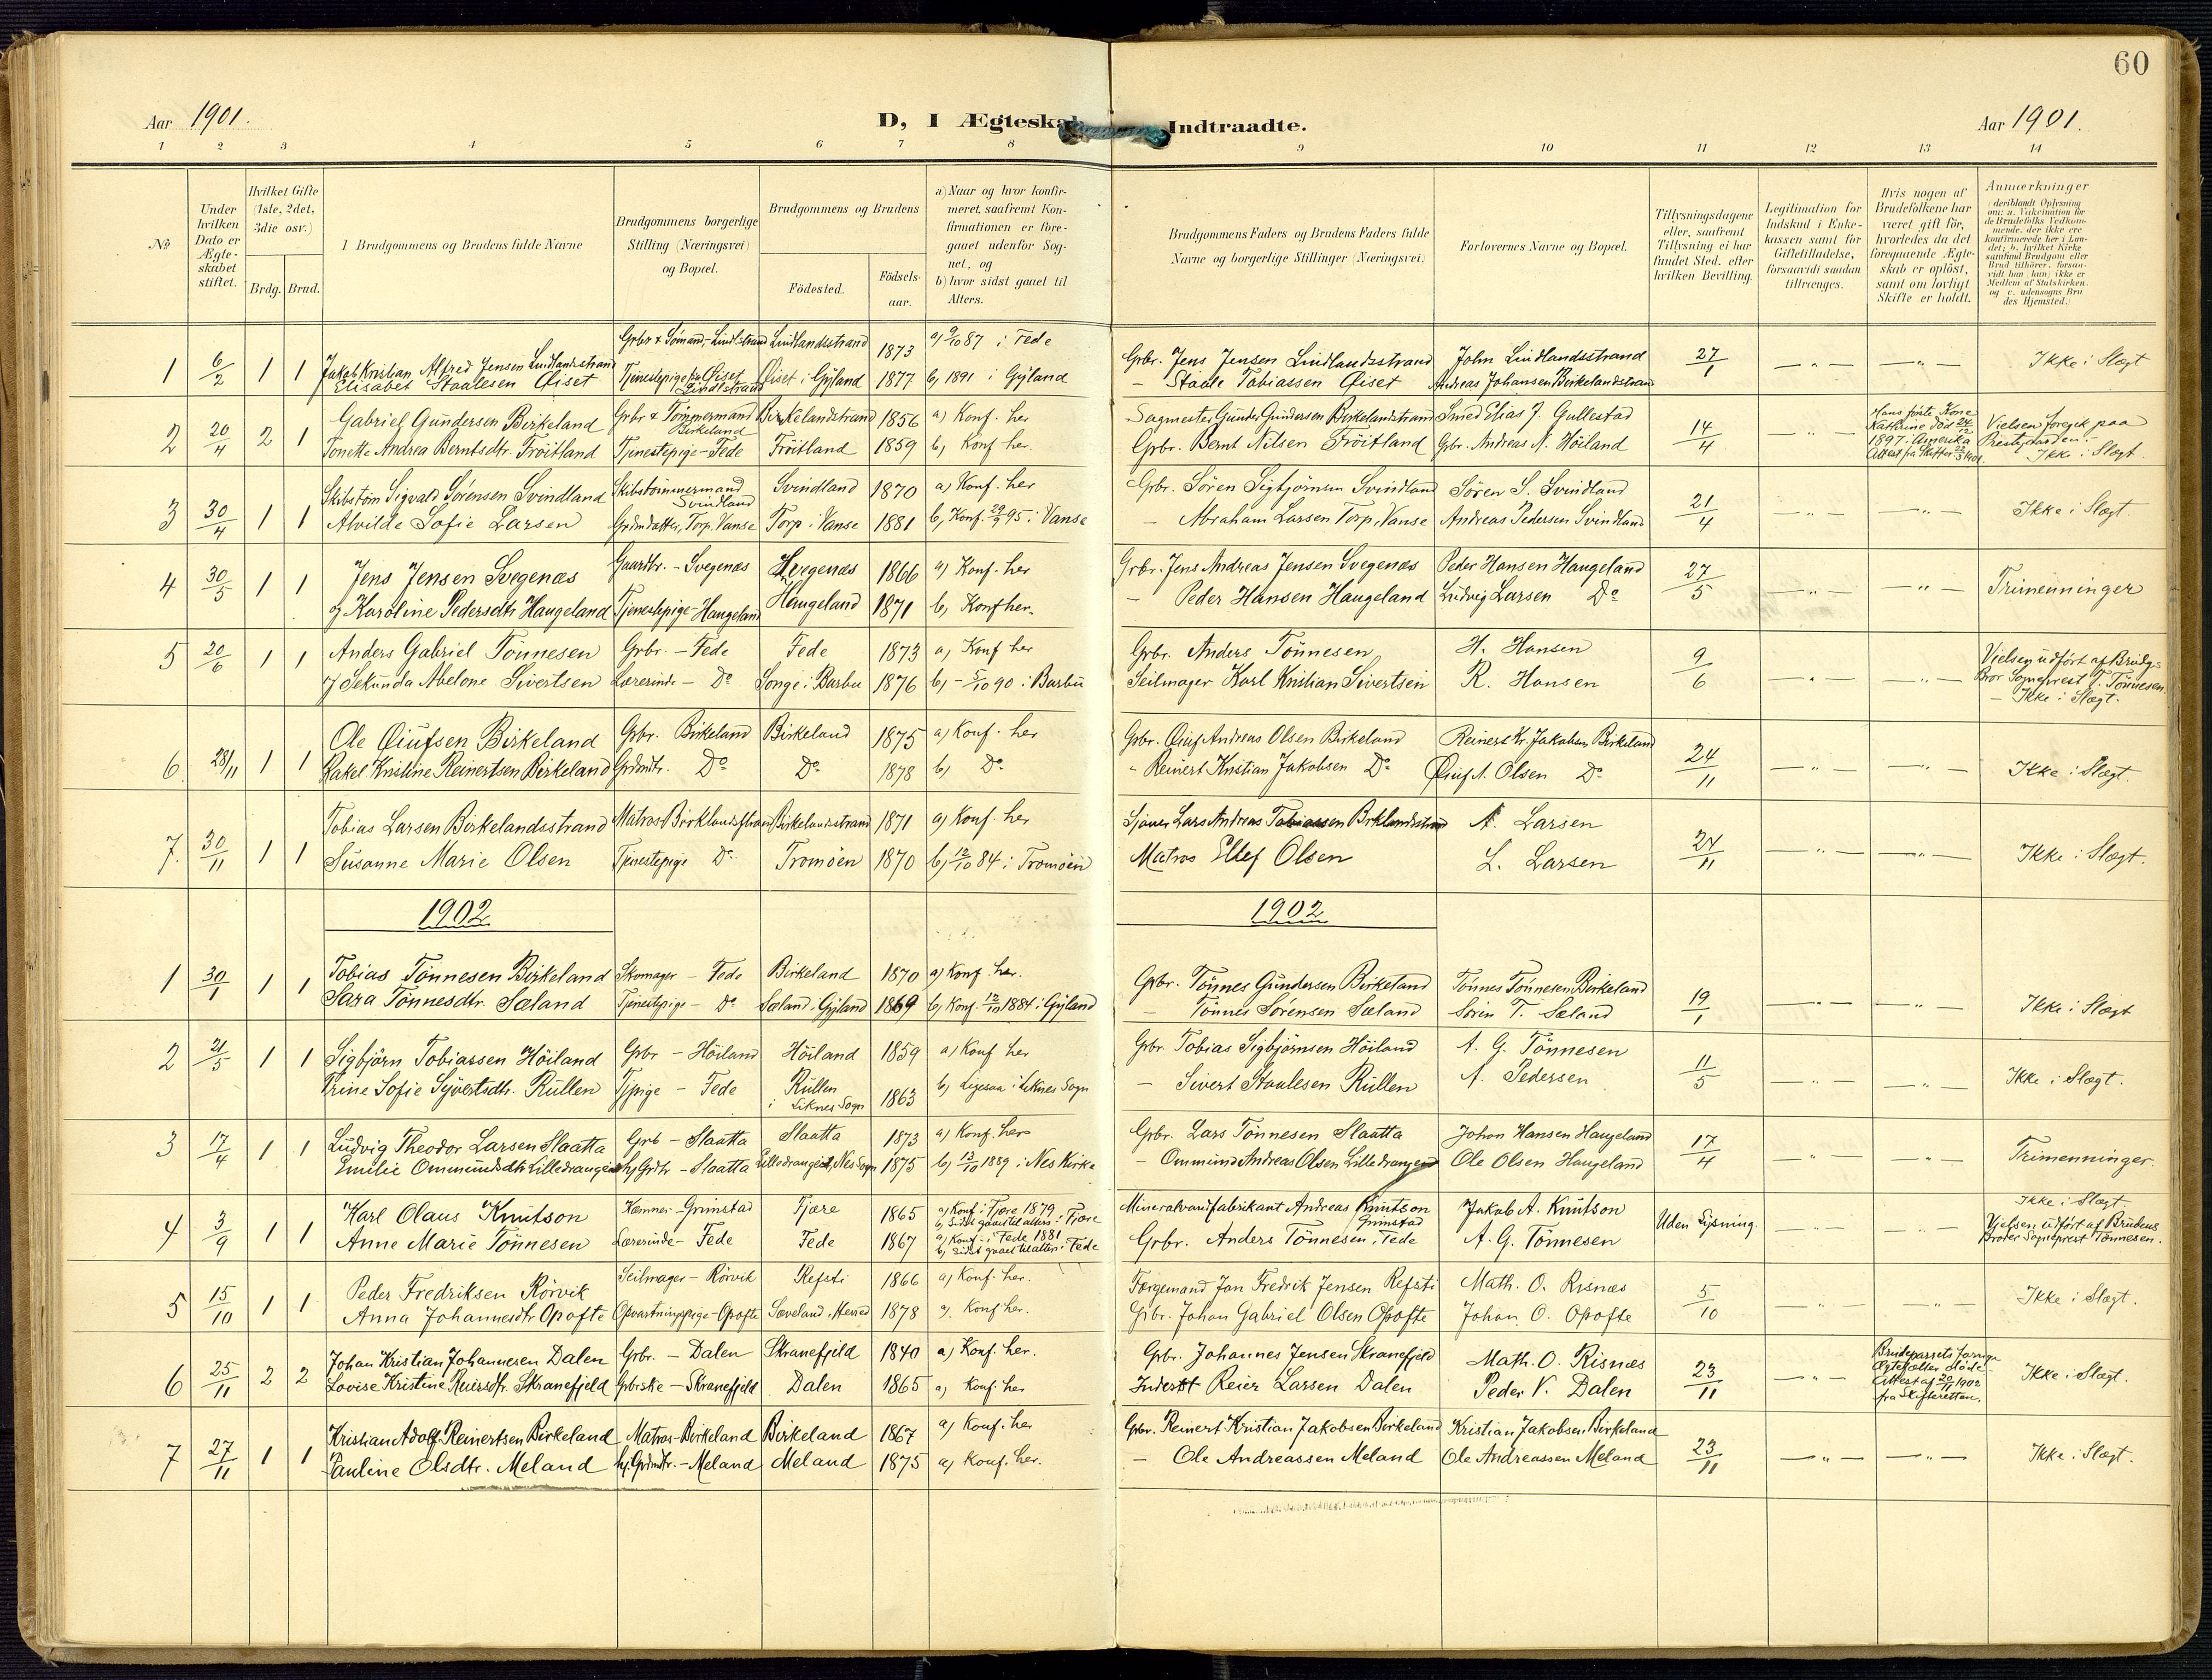 60
Aar 1901. D, I Ægteskab Indtraadte. Aar 1901.
1 2 3 4 5 6 7 8 9 10 11 12 13 14
No
Under hvilken Dato er Ægteskabet stiftet.
Hvilket Gifte (1ste, 2det, 3die osv.)
Brdg. Brud.
Brudgommens og Brudens fulde Navne
Brudgommens borgerlige Stilling (Næringsvei) og Bopæl.
Brudgommens og Brudens
Födested. Födselsaar.
a) Naar og hvor konfirmeret, saafremt Konfirmationen er foregaaet udenfor Sognet, og
b) hvor sidst gaaet til Alters.
Brudgommens Faders og Brudens Faders fulde Navne og borgerlige Stillinger (Næringsvei)
Forlovernes Navne og Bopæl.
Tillysningsdagene eller, saafremt Tillysning ei har fundet Sted, efter hvilken Bevilling.
Legitimation for Indskud i Enkekassen samt for Giftetilladelse, forsaavidt saadan tiltrænges.
Hvis nogen af Brudefolkene har været gift før, hvorledes da det foregaaende Ægteskab er oplöst, samt om lovligt Skifte er holdt.
Anmærkninger (deriblandt Oplysning om: a. Vakcination for de Brudefolks Vedkommende, der ikke ere konfirmerede her i Landet; b. hvilket Kirkesamfund Brudgom eller Brud tilhörer, forsaavidt han (hun) ikke er Medlem af Statskirken, og c. udensogns Brudes Hjemsted.)
1 6/2 1 1 Jakob Kristian Alfred Jensen Lindlandsstrand Grbr & Sömand, Lindl.strand Lindlandsstrand 1873 a) 9/10 87 i Fede Grbr. Jens Jensen Lindlandsstrand John Lindlandsstrand 27/1 Ikke i Slægt
Elisabet Staalesen Öiset Tjenestepige fra Öiset Lindl.strand Öiset i Gyland 1877 b) 1891 i Gyland - Staale Tobiassen Öiset Andreas Johansen Birkelandstrand
2 20/4 2 1 Gabriel Gundersen Birkeland Grbr & Tömmermand Birkeland Birkelandstrand 1856 a) Konf. her Sagmester Gunder Gundersen Birkelandstrand Smed Elias J. Gullestad 14/4 Hans förste Kone Kathrine död 24/12 1897 i Amerika Attest fra Skifter 22/3 1901. Vielsen foregik paa Prestegaarden. - Ikke i Slægt.
Tonette Andrea Berntsdtr. Fröitland Tjenestepige - Fede Fröitland 1859 b) Konf her. Grbr. Bernt Nilsen Fröitland Grbr. Andreas N. Höiland
3 30/4 1 1 Skibstöm Sigvald Sörensen Svindland Skibstömmermand Svindland Svindland 1870 a) Konf. her Grbr. Sören Sigbjörnsen Svindland Sören S. Svindland 21/4 Ikke i Slægt.
Alvilde Sofie Larsen Grdmdatter, Torp, Vanse Torp i Vanse 1881 b) Konf. 29/9 95 i Vanse - Abraham Larsen Torp, Vanse Andreas Pedersen Svindland
4 30/5 1 1 Jens Jensen Svegenæs Gaardbr. - Svegenæs Svegenæs 1866 a) Konf. her Grbr. Jens Andreas Jensen Svegenæs Peder Hansen Haugeland 27/5 Trimenninger
og Karoline Pedersdtr Haugeland Tjenestepige - Haugeland Haugeland 1871 b) Konf her. - Peder Hansen Haugeland Ludvig Larsen Do
5 20/6 1 1 Anders Gabriel Tönnesen Grbr. - Fede Fede 1873 a) Konf her Grbr. Anders Tönnesen H. Hansen 9/6 Vielsen udfört af Brudg. Bror Sogneprest T. Tönnesen. - Ikke i Slægt.
og Sekunda Abelone Sivertsen Lærerinde - Do Songe i Barbu 1876 b) - 5/10 90 i Barbu Seilmager Karl Kristian Sivertsen R. Hansen
6 28/11 1 1 Ole Öiufsen Birkeland Grbr. Birkeland Birkeland 1875 a) Konf. her Grbr. Öiuf Andreas Olsen Birkeland Reinert Kr. Jakobsen Birkeland 24/11 Ikke i Slægt.
Rakel Kristine Reinertsen Birkeland Grdmdtr. Do Do 1878 b) Do - Reinert Kristian Jakobsen Do Öiuf A. Olsen Do
7. 30/11 1 1 Tobias Larsen Birkelandsstrand Matros Birklandsstrand Birkelandsstrand 1871 a) Konf. her Sjöm. Lars Andreas Tobiassen Birklandstrand A. Larsen 24/11 Ikke i Slægt.
Susanne Marie Olsen Tjenestepige Do Tromöen 1870 b) 12/10 84 i Tromöen Matros Ellef Olsen L. Larsen
1902 1902
1 30/1 1 1 Tobias Tönnesen Birkeland Skomager - Fede Birkeland 1870 a) Konf. her. Grbr. Tönnes Gundersen Birkeland Tönnes Tönnesen Birkeland 19/1 Ikke i Slægt
Sara Tönnesdtr. Sæland Tjenestepige - Do Sæland, Gyland 1869 b) Konf. 12/10 1884 i Gyland - Tönnes Sörensen Sæland Sören T. Sæland
2 21/5 1 1 Sigbjörn Tobiassen Höiland Grbr - Höiland Höiland 1859 a) Konf her Grbr. Tobias Sigbjörnsen Höiland A. G. Tönnesen 11/5 Ikke i Slægt.
Trine Sofie Syvertsdtr. Rullen Tjpige - Fede Rullen i Liknes Sogn 1863 b) Ligesaa i Liknes Sogn - Sivert Staalesen Rullen A. Pedersen
3 17/4 1 1 Ludvig Theodor Larsen Slaatta Grb - Slaatta Slaatta 1873 a) Konf. her Grbr. Lars Tönnesen Slaatta Johan Hansen Haugeland 17/4 Trimenninger.
Emilie Ommundsdtr. Lilledrangeid Hj. Grdtr - Slaatta Lilledrangeid, Nes Sogn 1875 b) 13/10 1889 i Nes Kirke - Ommund Andreas Olsen Lilledrangeid Ole Olsen Haugeland
4 3/9 1 1 Karl Olaus Knutson Kæmner - Grimstad Fjære 1865 a) Konf. i Fjære 1879 b) Sidst gaaet til alters i Fjære Mineralvandfabrikant Andreas Knutson Grimstad Jakob A. Knutson Uden Lysning. Ikke i Slægt. Vielsen udfört af Brudens Broder Sogneprest Tönnesen.
Anne Marie Tönnesen Lærerinde - Fede Fede 1867 a) Konf. i Fede 1881 b) Sidst gaaet til alters i Fede Grbr. Anders Tönnesen i Fede A. G. Tönnesen
5 15/10 1 1 Peder Fredriksen Rörvik Seilmager - Rörvik Refsti 1866 a) Konf. her. Færgemand Jan Fredrik Jensen Refsti Math. O. Risnæs 5/10 Ikke i Slægt.
Anna Johannesdtr Opofte Opvartningspige - Opofte Sæveland, Herred 1878 a) Konf her. Grbr. Johan Gabriel Olsen Opofte Johan O. Opofte
6 25/11 2 2 Johan Kristian Johannesen Dalen Grbr. - Dalen Skranefjeld 1840 a) Konf. her. Grbr. Johannes Jensen Skranefjeld Math. O. Risnæs 23/11 Brudeparrets forrige Ægtefæller döde Attest af 20/11 1902 fra Skifteretten. Ikke i Slægt.
Lovise Kristine Reiersdtr. Skranefjeld Grbrske - Skranefjeld Dalen 1865 a) Konf. her Inderst Reier Larsen Dalen Peder V. Dalen
7 27/11 1 1 Kristian Adolf Reinertsen Birkeland Matros - Birkeland Birkeland 1867 a) Konf. her Grbr. Reinert Kristian Jakobsen Birkeland Kristian Jakobsen Birkeland 23/11 Ikke i Slægt.
Pauline Olsdtr. Meland Hj. Grdmdtr. - Meland Meland 1875 a) Konf. her. - Ole Andreassen Meland Ole Andreassen Meland